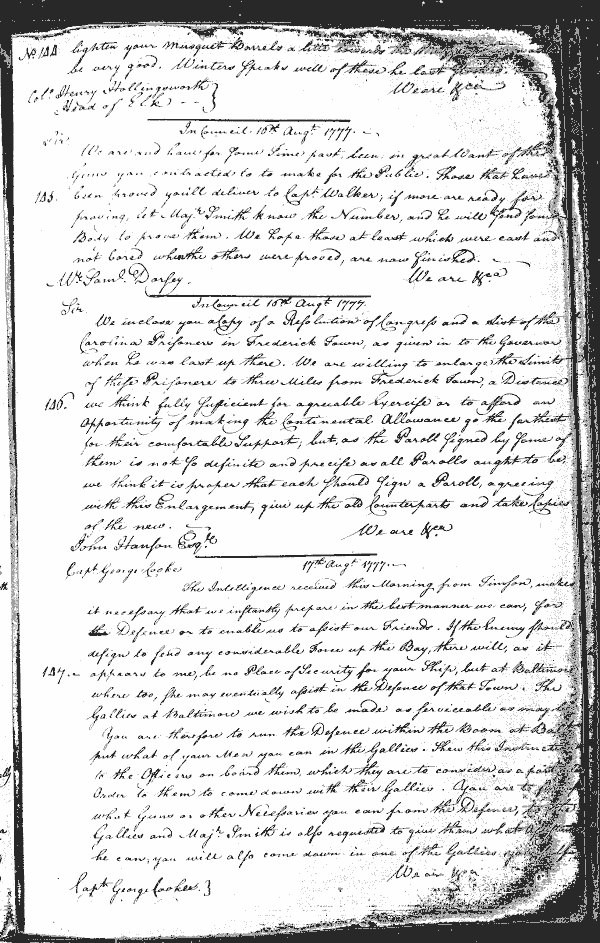 No. 144 lighten your Musquet Barrels a little towards the
be very good. Winters Speaks well of these he last proved.
Colo. Henry Hollingsworth } We are &ca
Head of Elk -- }
In Council 16th Augt. 1777.
Sir
We are and have for some Time past, been in great Want of the
Guns you contracted to to make for the Public. Those that have
145. been proved you'll deliver to Capt Walker; if more are ready for
proving, let Majr. Smith know the Number, and he will send some
Body to prove them. We hope those at least which were cast and
not bored when the others were proved, are now finished.
Mr. Saml. Dorsey. We are &ca
In Council 16th Augt 1777.
Sir
We inclose you a Copy of a Resolution of Congress and a List of the
Carolina Prisoners in Frederick Town, as given in to the Governor
when he was last up there. We are willing to enlarge the Limits
of these Prisoners to three Miles from Frederick Town, a Distance
146. we think fully sufficient for agreeable Exercise or to afford an
Opportunity of making the Continental Allowance go the farthest
for their comfortable Support, but, as the Paroll signed by some of
them is not so definite and precise as all Parolls ought to be,
we think it is proper that each should sign a Paroll, agreeing
with this Enlargement, give up the old Counterparts and take Copies
of the new.
We are &ca
John Hanson Esqr.
Capt George Cooke 17th Augt 1777.
The Intelligence received this Morning from Timson, makes
it necessary that we instantly prepare in the best manner we can, for
Defence or to enable us to assist our Friends. If the Enemy should
design to send any considerable Force up the Bay, there will, as it
147. appears to me, be no Place of Security for your Ship, but at Baltimore
where too, she may eventually assist in the Defence of that Town. The
Gallies at Baltimore we wish to be made as serviceable as may be
You are therefore to run the Defence within the Boom at
put what of your Men you can in the Gallies. Shew this
to the Officers on board them, which they are to consider as a
Order to them to come down with their Gallies. You are to
what Guns or other Necessaries you can from the Defence,
Gallies and Majr. Smith is also requested to give them what
he can; you will also come down in one of the Gallies
We are &ca
Capt George Cooke. }